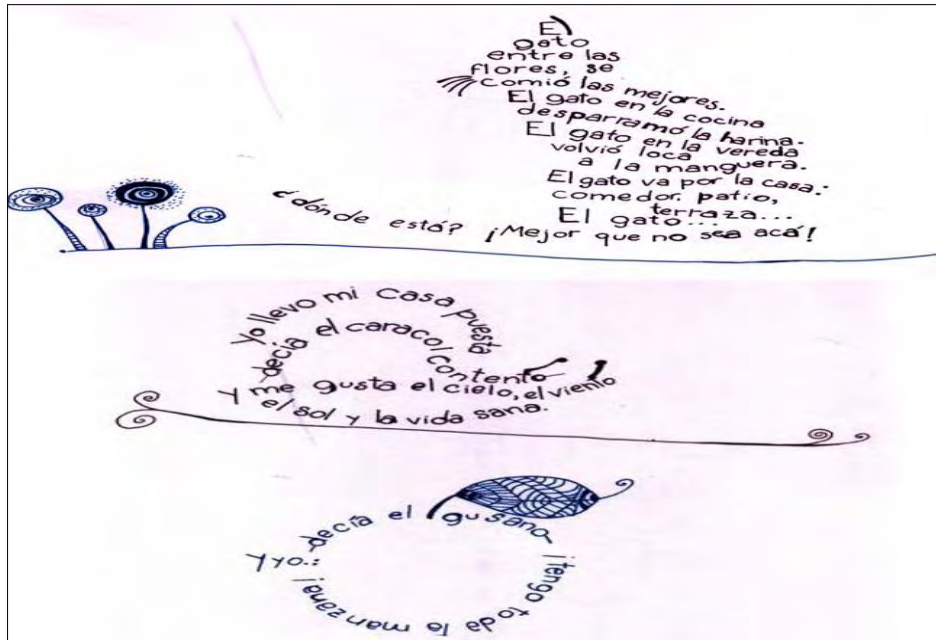 El
gato
entre las
flores, se
comió las mejores.
El gato en la cocina
desparramó la harina.
El gato en la vereda
volvió loca
a la manguera.
El gato va por la casa:
comedor. patio,
terraza...
El gato...
¿dónde está? ¡Mejor que no sea acá!
Yo llevo mi casa puesta
-decía el caracol contento-
Y me gusta el cielo, el viento
el sol y la vida sana.
Y yo.:
-decía el gusano-
¡tengo toda la manzana!